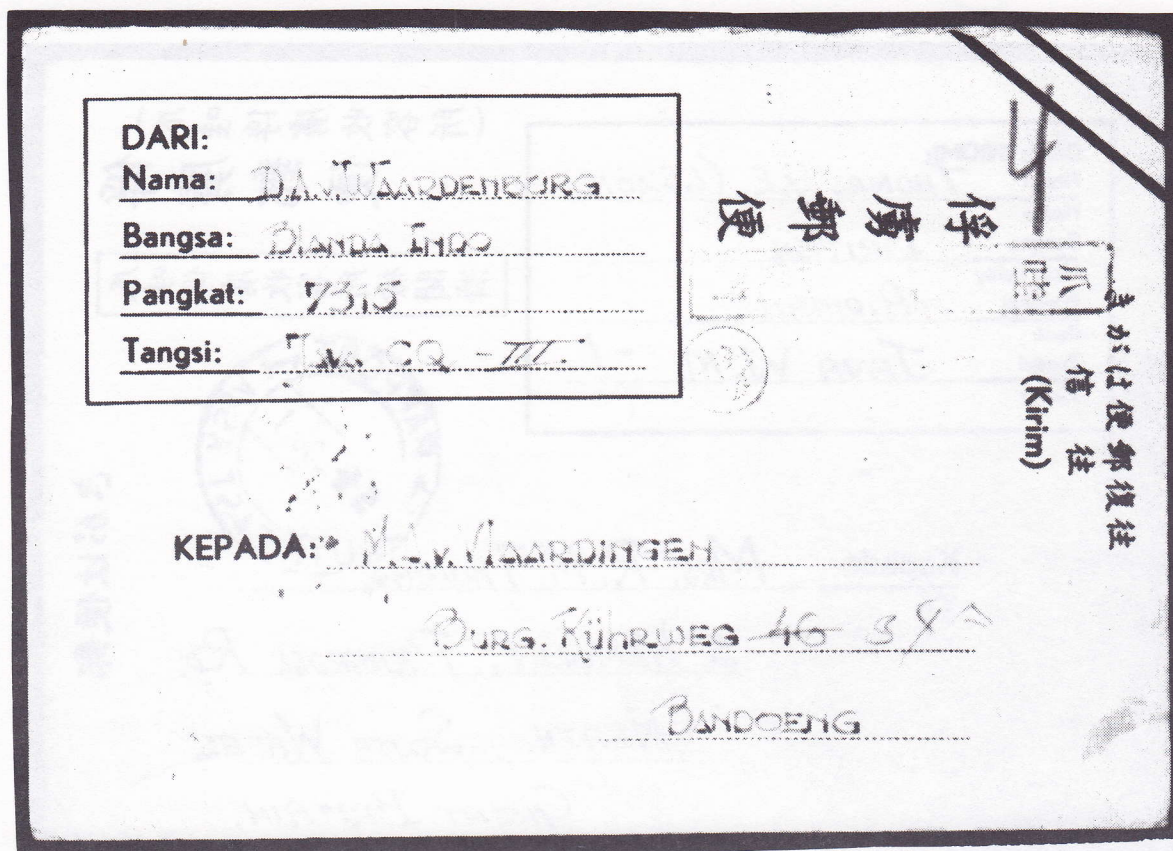 DARI:
Nama: D.A.v. WAARDENBURG
Bangsa: Blanda Indo
Pangkat: 7315
Tangsi: Java CQ - III.
俘虜郵便
4
爪哇
往復郵便はがき
往信
(Kirim)
KEPADA: M.C.v. VLAARDINGEN
BURG. KÜHRWEG 46 34
BANDOENG